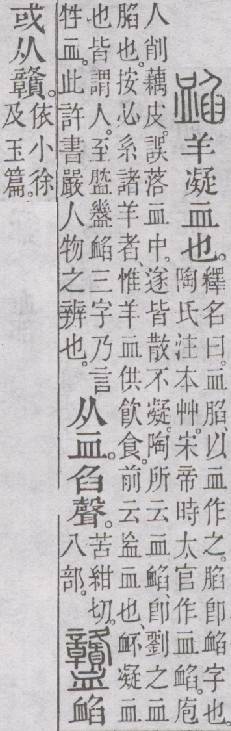 䘓羊凝血也。
釋名曰。血䐄、以血作之。䐄卽䘓字也。
陶氏注本艸。宋帝時太官作血䘓。庖
人削藕皮。誤落血中。遂皆散不凝。陶所云血䘓、卽劉之血
䐄也。按必系諸羊者、惟羊血供飮食。前云衁血也、衃凝血
也皆謂人。至䘓三字乃言
牲血。此許書嚴人物之辨也。
从血。臽聲。
苦紺切。
八部。
䘓
或从贛。
依小徐
及玉篇。